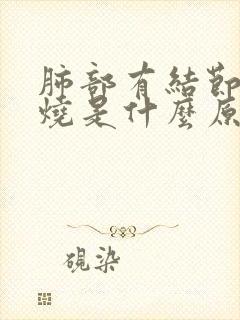 肺部有結節
燒是什麼原
硯染